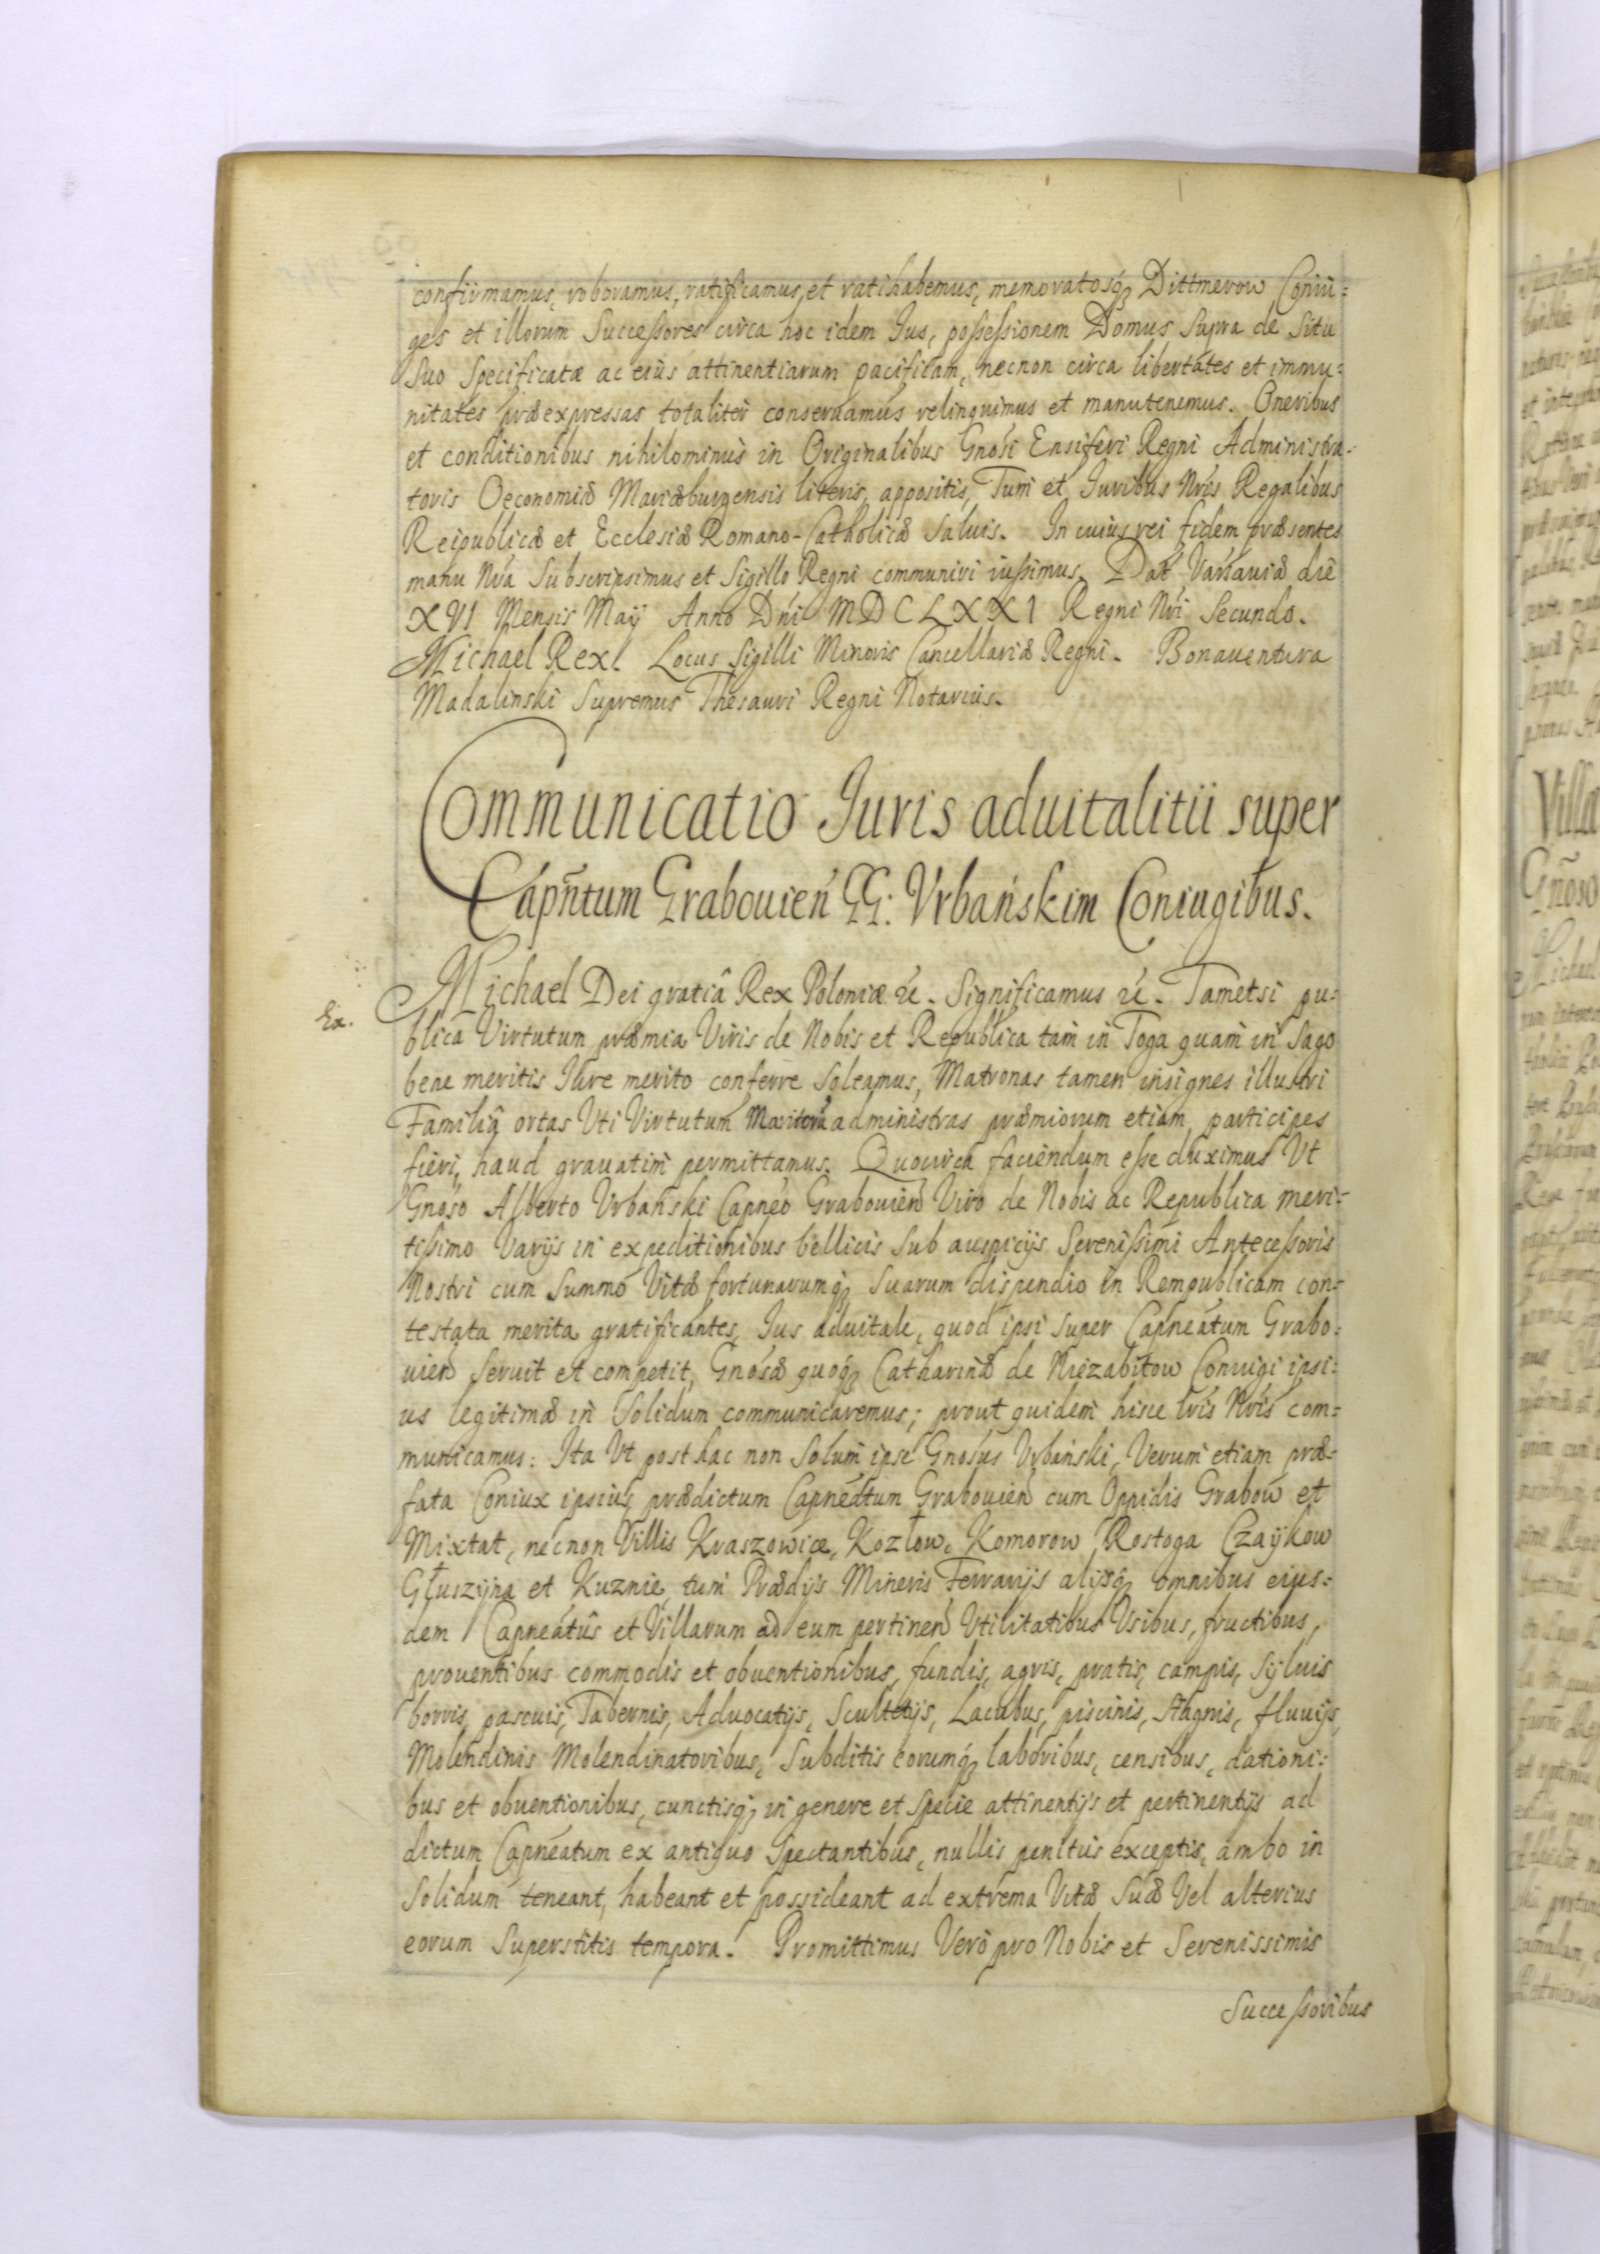 confirmamus, roboramus, ratificamus, et ratihabemus, memoratosq3 Dittmerow Coniu=
ges et illorum Successores circa hoc idem Ius, possessionem Domus supra de Situ
Suo Specificatæ ac eius attinentiarum pacificam, necnon circa libertates et immu=
nitates præexpressas totaliter conseruamus relinquimus et manutenemus. Oneribus
et conditionibus nihilominus in Originalibus Gnosi Ensiferi Regni Administra=
toris Oeconomiæ Mariæburgensis literis, appositis, Tum et Iuribus Nris Regalibus
Reipublicæ et Ecclesiæ Romano-Catholicæ Saluis. In cuius rei fidem præsentes
manu Nra Subscripsimus et Sigillo Regni communiri iussimus. Dat Varsauiæ die
XVI Mensis Maij Anno Dni MDCLXXI Regni Nri Secundo.
Michael Rex. Locus Sigilli Minoris Cancellariæ Regni. Bonauentura
Madalinski Supremus Thesauri Regni Notarius.
Communicatio Iuris aduitalitii super
Capntum Grabouien GG: Vrbańskim Coniugibus.
Ex.
Michael Dei gratiâ Rex Poloniæ &. Significamus &. Tametsi pu=
blica Virtutum præmia Viris de Nobis et Republica tam in Toga quam in Sago
bene meritis Iure merito conferre Soleamus, Matronas tamen insignes illustri
Familiâ ortas Vti Virtutum Maritorũ administras præmiorum etiam participes
fieri, haud grauatim permittamus. Quocirca faciendum esse duximus Vt
Gnoso Alberto Vrbański Capneo Grabouien Viro de Nobis ac Republica meri=
tissimo Varijs in expeditionibus bellicis Sub auspicijs Serenissimi Antecessoris
Nostri cum Summo Vitæ fortunarumq3 Suarum dispendio in Rempublicam con=
testata merita gratificantes, Ius aduitale, quod ipsi super Capneatum Grabo=
uien Seruit et competit, Gnosæ quoq3 Catharinæ de Niezabitow Coniugi ipsi=
us legitimæ in Solidum communicaremus; prout quidem hisce lris Nris com=
municamus: Ita Vt post hac non Solum ipse Gnosus Vrbański, Verum etiam præ=
fata Coniux ipsius, prædictum Capneatum Grabouien cum Oppidis Grabow et
Mixtat, necnon Villis Kraszowice, Kozłow, Komorow Rostoga Czaykow
Głuszyna et Kuznie, tum Prædijs Mineris Ferrarijs alijsq3 omnibus eius=
dem Capneatûs et Villarum ad eum pertinen Vtilitatibus Vsibus, fructibus,
prouentibus commodis et obuentionibus, fundis, agris, pratis, campis, syluis
borris, pascuis, Tabernis, Aduocatijs, Scultetijs, Lacubus, piscinis, stagnis, fluuijs,
Molendinis Molendinatoribus, Subditis eorumq3 laboribus, censibus, dationi=
bus et obuentionibus, cunctisq3 in genere et Specie attinentijs et pertinentijs ad
dictum Capneatum ex antiquo Spectantibus, nullis penitus exceptis, ambo in
Solidum teneant, habeant et possideant ad extrema Vitæ Suæ Vel alterius
eorum Superstitis tempora. Promittimus Vero pro Nobis et Serenissimis
Successoribus